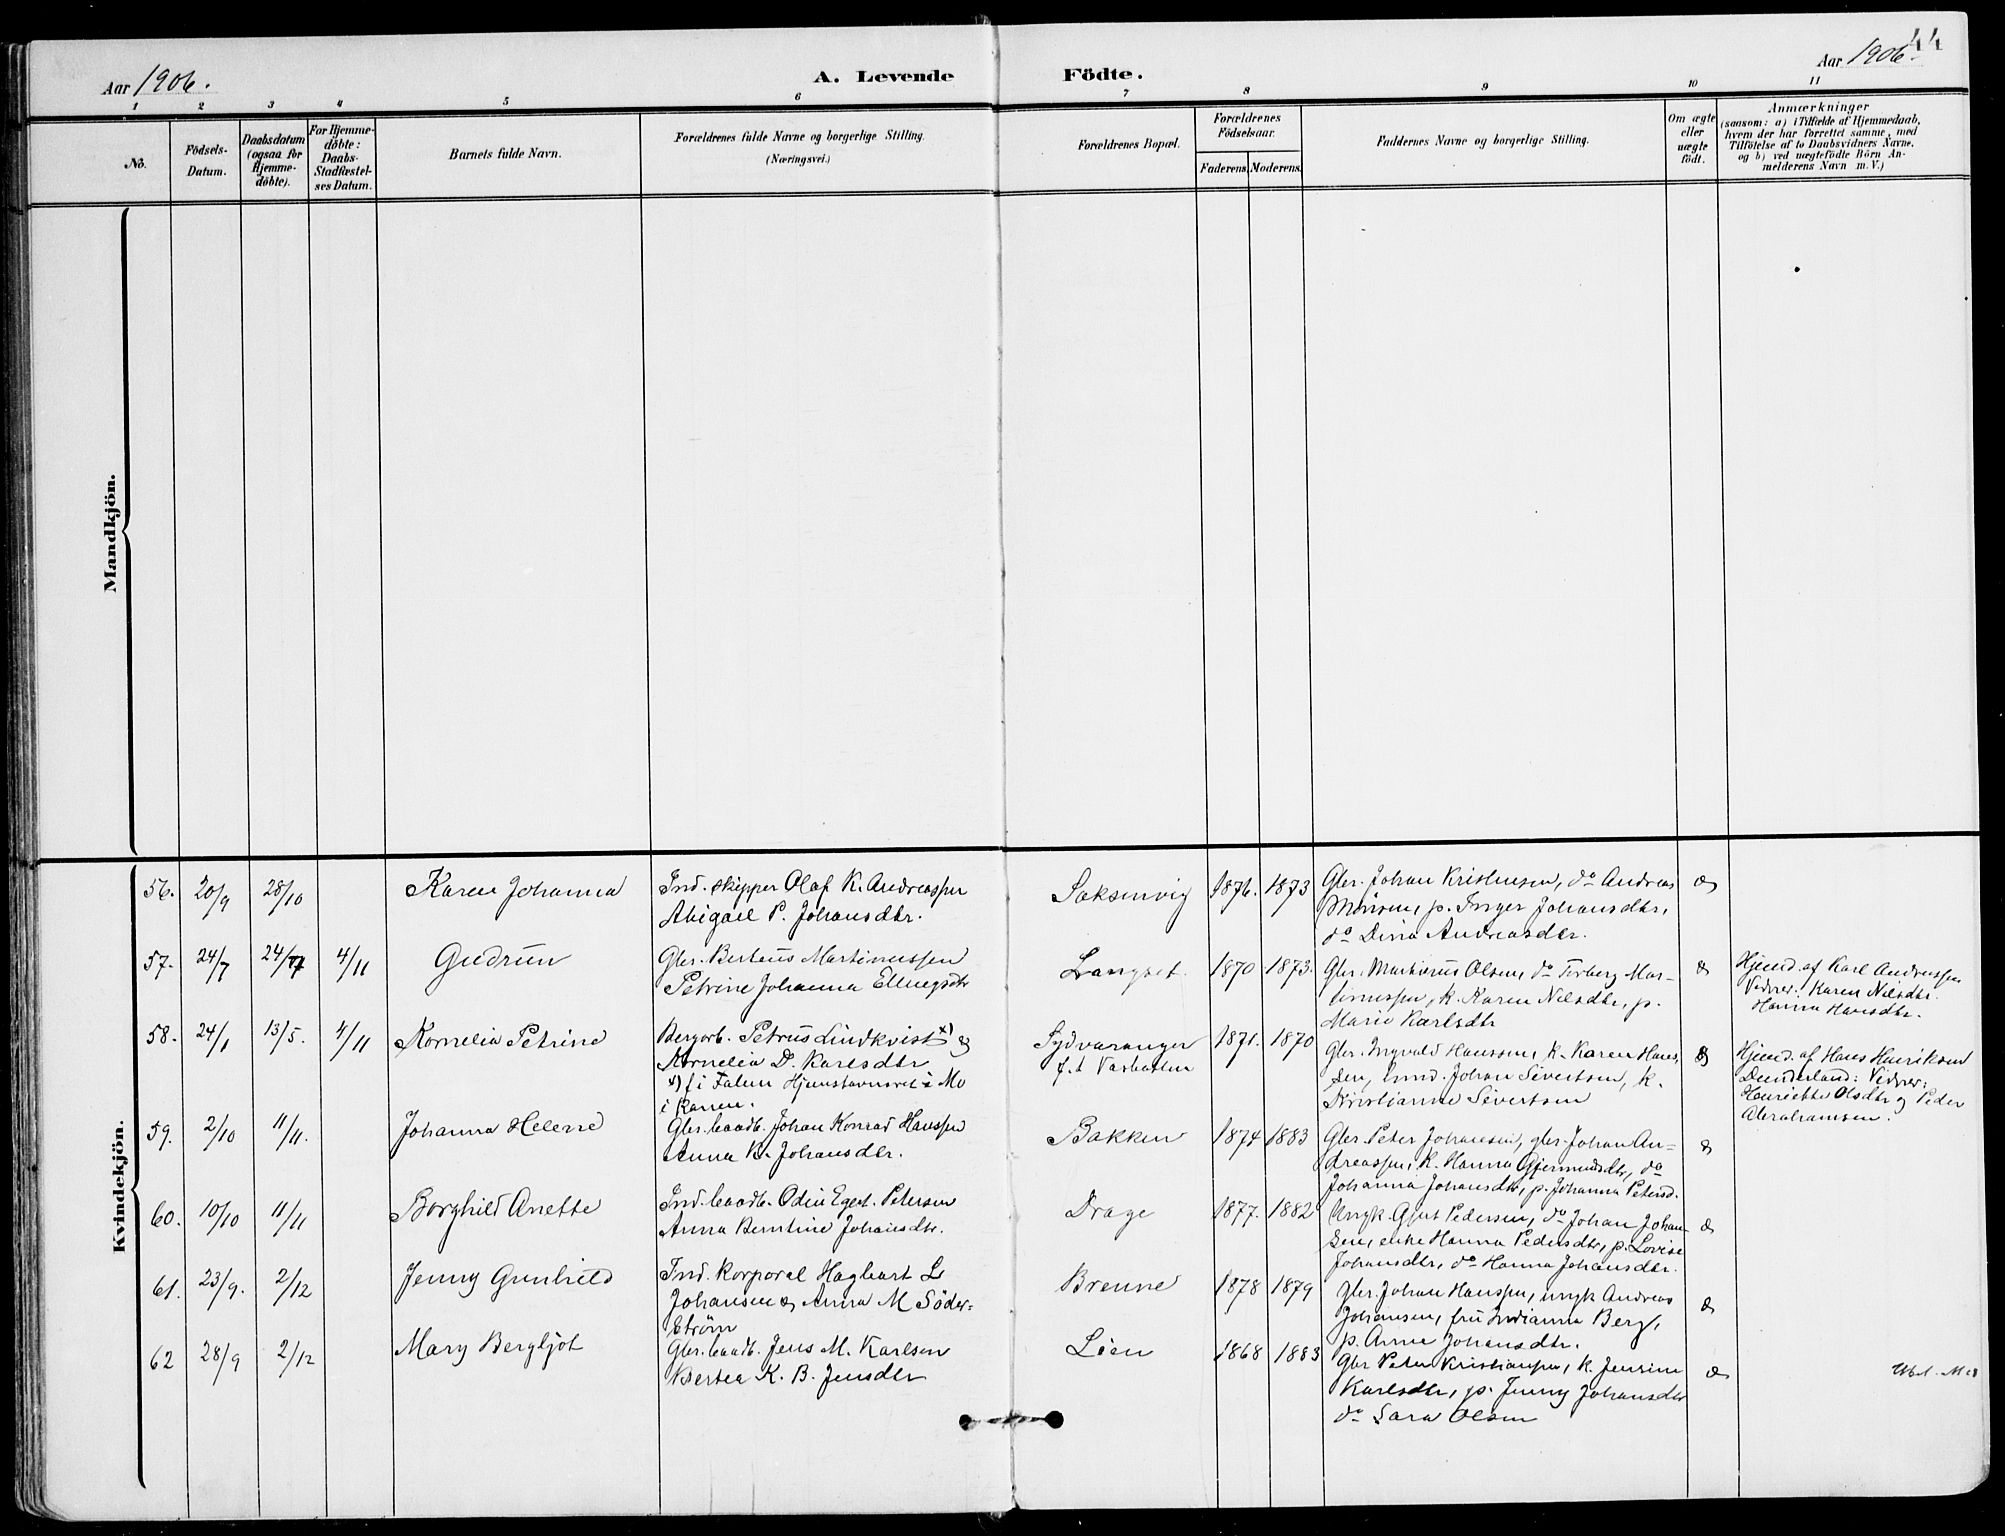 Aar 1906. A. Levende Födte. Aar 1906. 44
1 2 3 4 5 6 7 8 9 10 11
No. Födsels-Datum. Daabsdatum (ogsaa for Hjemme-döbte). For Hjemme-döbte: Daabs-Stadfæstel-ses Datum. Barnets fulde Navn. Forældrenes fulde Navne og borgerlige Stilling. (Næringsvei.) Forældrenes Bopæl. Forældrenes Födselsaar. Faderens. Moderens. Faddernes Navne og borgerlige Stilling. Om ægte eller uægte födt. Anmærkninger
(saasom: a) i Tilfælde af Hjemmedaab,
hvem der har forrettet samme, med
Tilföielse af to Daabsvidners Navne.
og b) ved uægtefödte Börn An-
melderens Navn m. V.)
Mandkjön.
Kvindekjön.
56. 20/9 28/10 Karen Johanna
Ind. skipper Olaf K. Andreassen
Abigael P. Johansdtr.
Saksenvig 1876. 1873
Gbr. Johan Kristensen, do Andreas
p. Inger Johansdtr,
do Dina Andreasdtr.
57. 24/7 24/7 4/11 Gudrun
Gbr. Berteus Martinussen
Petrine Johanna Ellingsdtr
Langset. 1870 1873.
Gbr. Martinus Olsen, do Torberg Mar-
tinussen, k. Karen Nilsdtr, p.
Marie Karlsdtr
Hjemd. af Karl Andreassen
Vidner: Karen Nilsdtr.
Hanna Hansdtr.
58. 24/1 13/5. 4/11 Kornelia Petrine
Bergarb. Petrus Lindkvist x) og
Kornelia D. Karlsdtr
x) f i Falun Hjemstavnsret i Mo
i Ranen.
Sydvaranger
f. t 1871. 1870
Gbr. Ingvald Hanssen, k. Karen Hans
sen, Johan Sivertsen, k.
Kristianne Sivertsen
Hjemd. af Hans Henriksen
Dunderland: Vidner:
Henriette Olsdtr og Peder
Abrahamsen.
59. 2/10 11/11. Johanna Helene
Gbr. baadb. Johan Konrad Hanssen
Anna K. Johansdtr.
Bakken 1874 1883
Gbr. Peter Johansen, gbr. Johan An-
dreassen, k. Hanna Gjermundsdtr, do
Johanna Johansdtr, p. Johanna Petersd.
60. 10/10 11/11 Borghild Anette
Ind. baadb. Odin Egert. Petersen
Anna Berntine Johansdtr.
Drage 1877. 1882
Ungk. Gjert Pedersen, do Johan Johan-
sen, enke Hanna Pedersdtr, p. Lovise
Johansdtr, do Hanna Johansdtr.
61. 23/9. 2/12 Jenny Gunhild
Ind. Korporal Hagbart L
Johansen og Anna M Söder-
ström
Brenne 1878 1879
Gbr. Johan Hanssen, ungk Andreas
Johansen, fru Indianna Berg,
p. Anna Johansdtr.
62 28/9 2/12 Mary Bergljot
Gbr. baadb. Jens M. Karlsen
Bertea K. B. Jensdtr
Lien 1868 1883
Gbr Peter Kristiansen, k. Jensine
Karlsdtr, p. Jenny Johansdtr
do Sara Olsen